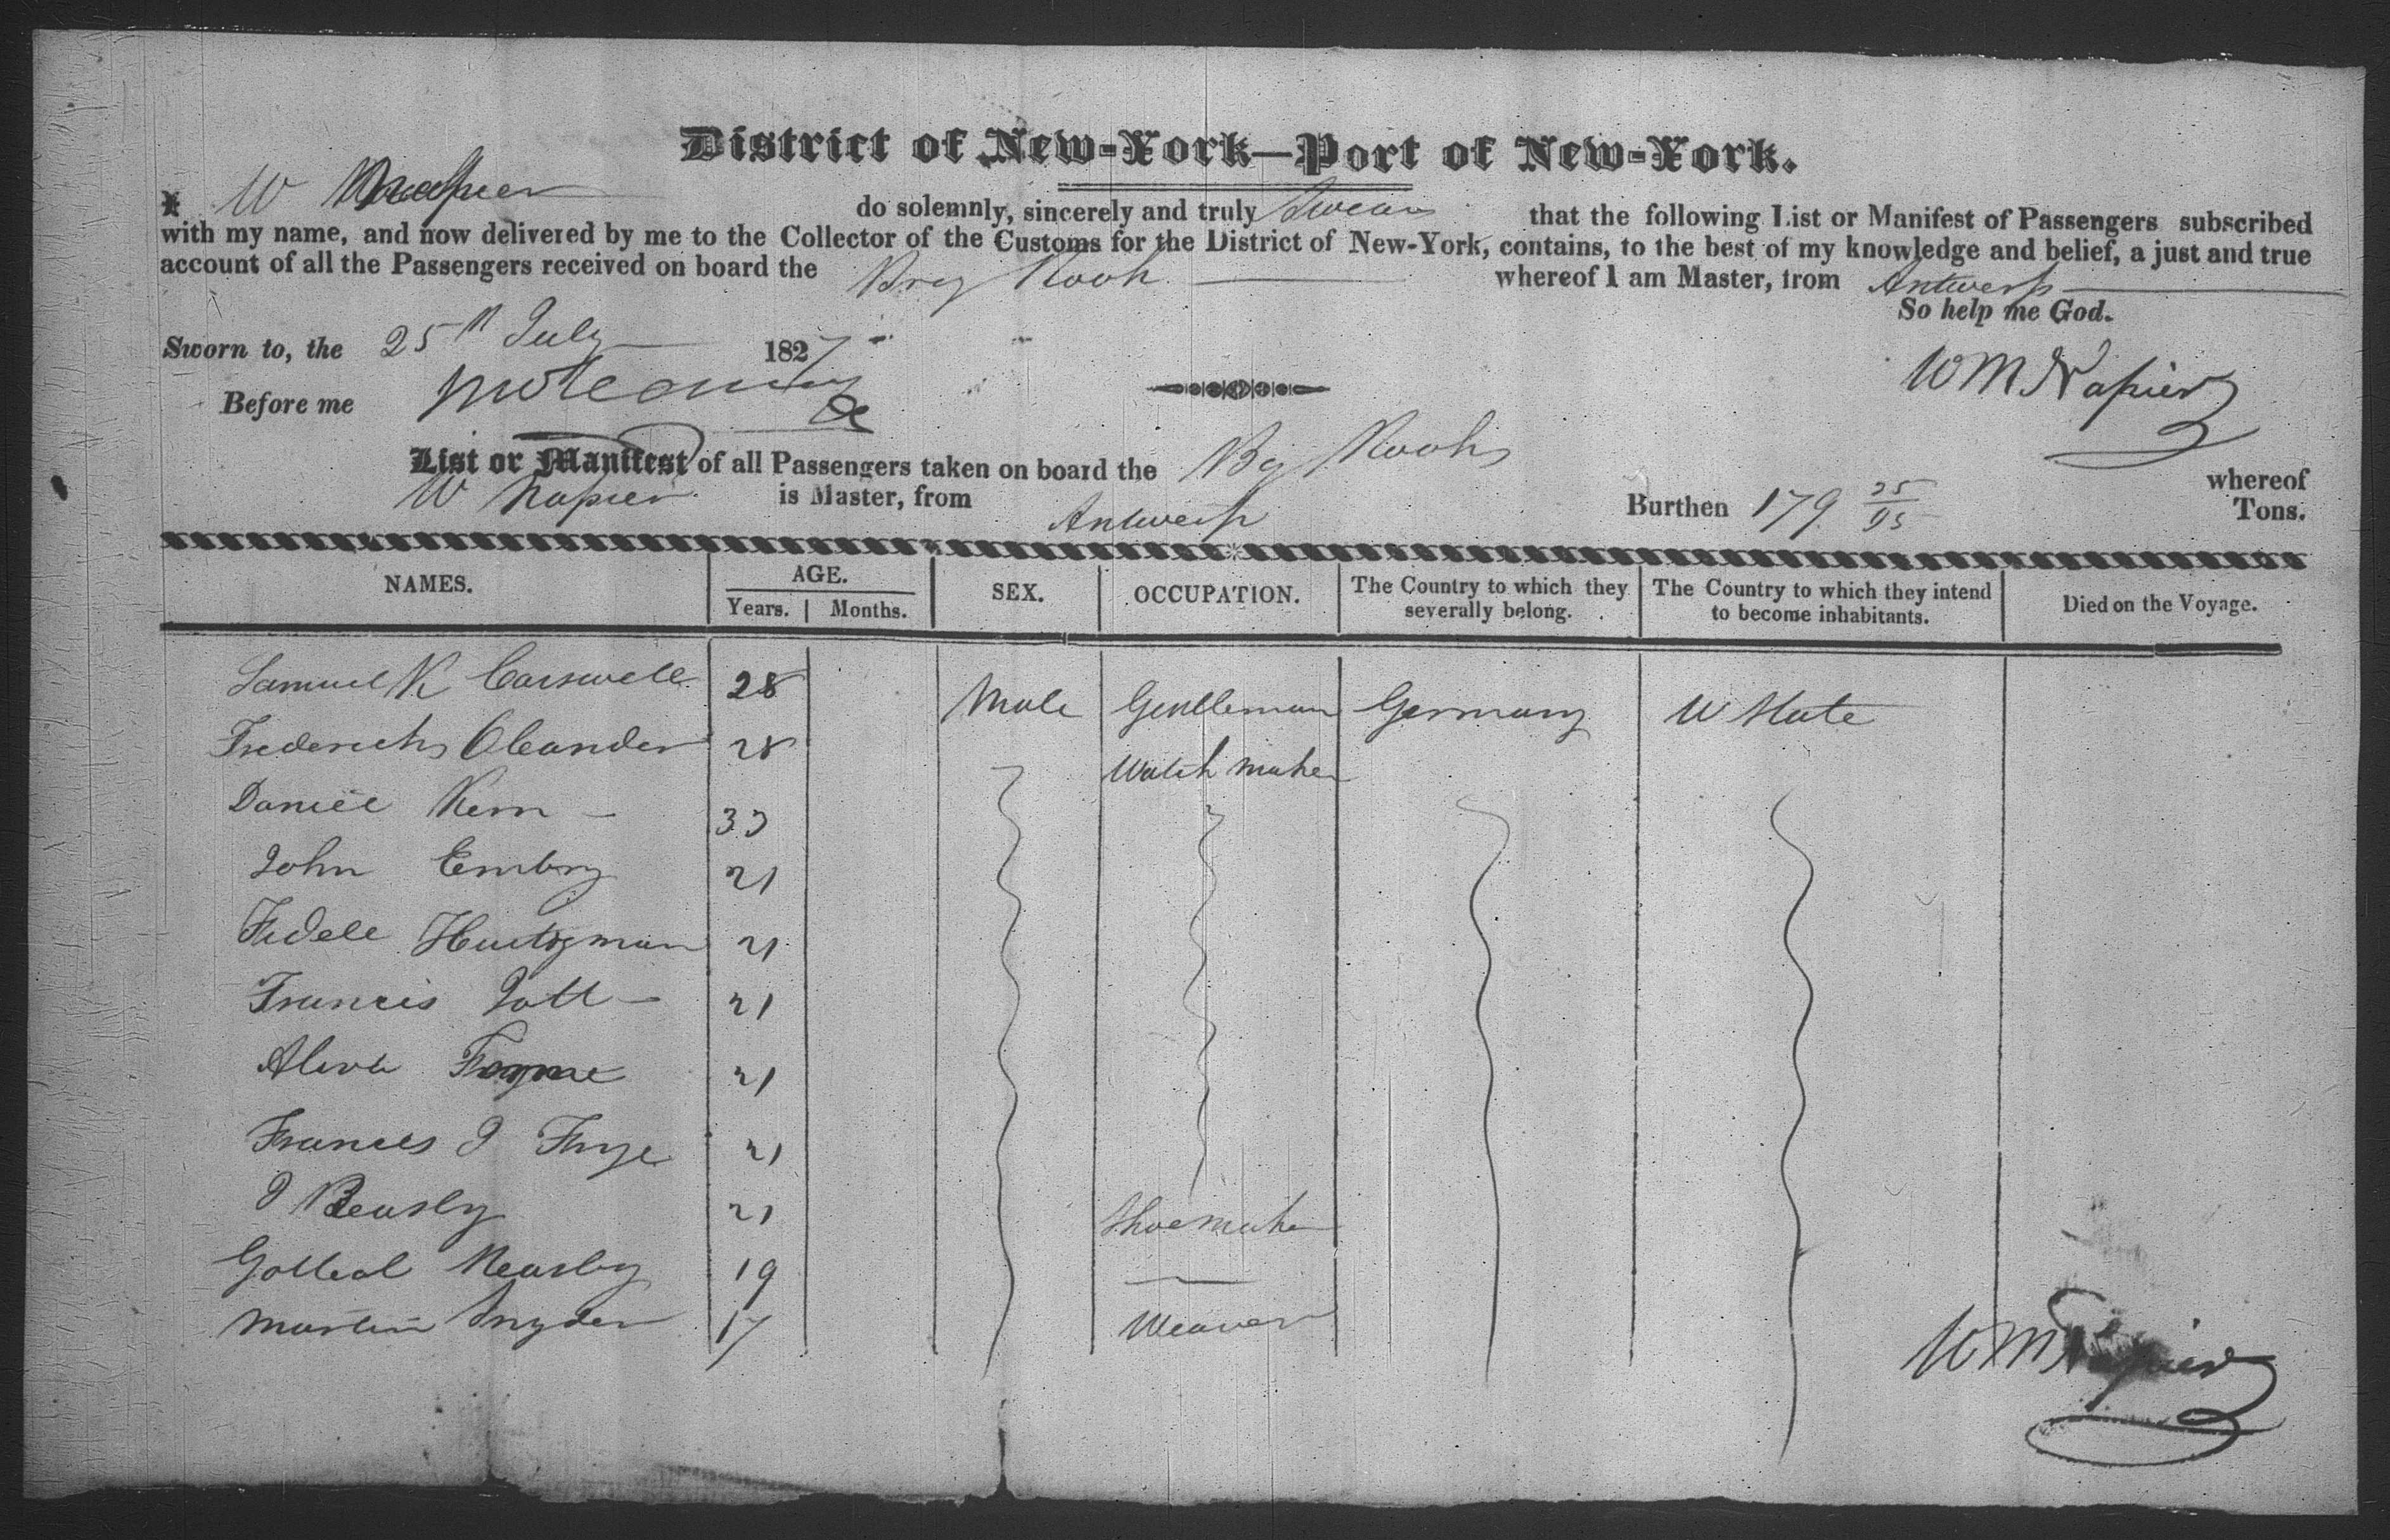 District of New-York—Port of New-York.
I W Napier do solemnly, sincerely and truly Swear that the following List or Manifest of Passengers subscribed
with my name, and now delivered by me to the Collector of the Customs for the District of New-York, contains, to the best of my knowledge and belief, a just and true
account of all the Passengers received on board the Brig whereof I am Master, from Antwerp
So help me God.
Sworn to, the 25th July 1827
Before me
W M Napier
List or Manifest of all Passengers taken on board the Bg whereof
W Napier is Master, from Antwerp Burthen 179 25/95 Tons.
NAMES. AGE. Years. Months. SEX. OCCUPATION. The Country to which they severally belong. The Country to which they intend to become inhabitants. Died on the Voyage.
Samuel K Carswell 28 Male Gentleman Germany U State
Frederick Oleander 28 Watch maker
Daniel Kern 33
John Embry 21
Fidele Hurtzman 21
Francis 21
21
Frances J Frye 21
J Beasly 21 Shoemaker
19
Martin Snyder 17 Weaver
W M Napier